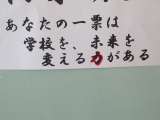 あなたの一票は
学校を、未来を
変える力がある